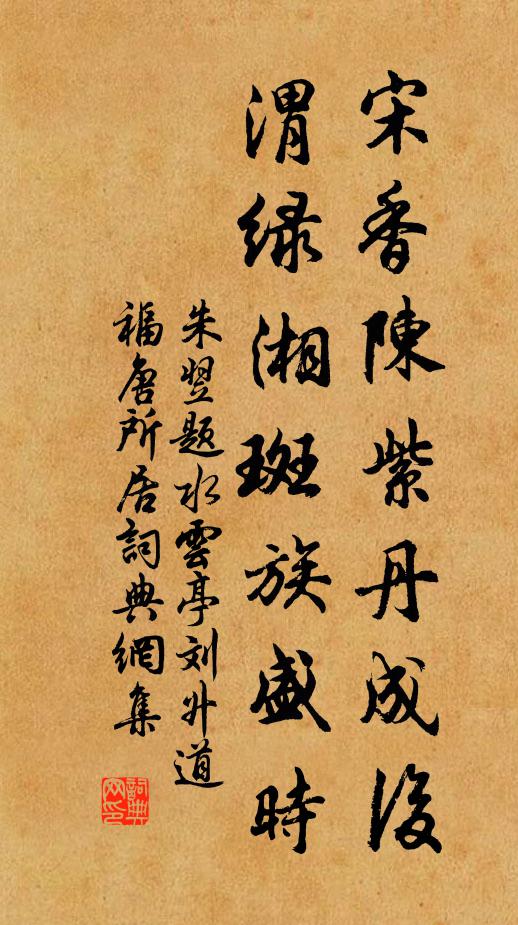 宋香陳紫丹成後
渭緑湘斑族盛時
朱翌題水雲亭刘升道
福唐所居詞典網集
詞典
网印